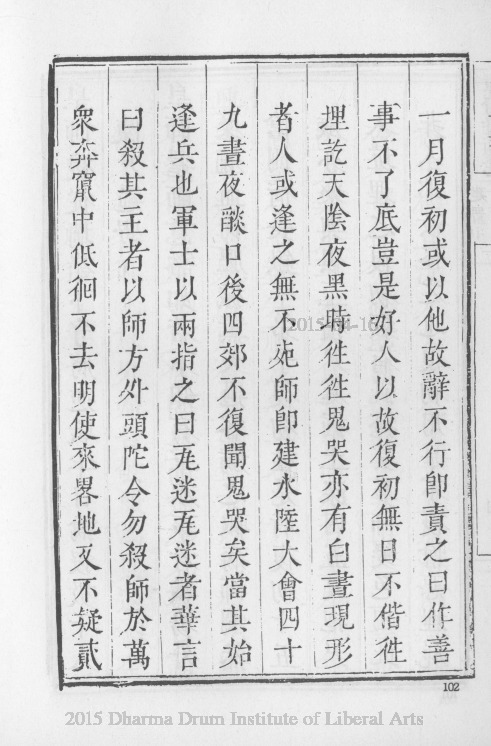 一月復初或以他故辭不行卽責之曰作善
事不了底豈是好人以故復初無日不偕徃
埋訖天陰夜黑時徃徃鬼哭亦有白晝現形
者人或逢之無不𡯁師卽建水陸大會四十
九晝夜𦦨口後四郊不復聞鬼哭矣當其始
逢兵也軍士以兩指之曰兂迷兂迷者華言
曰殺其王者以師方外頭陀令勿殺師於萬
衆奔竄中低徊不去明使來畧地又不疑貳
102
2015 Dharma Drum Institute of Liberal Arts